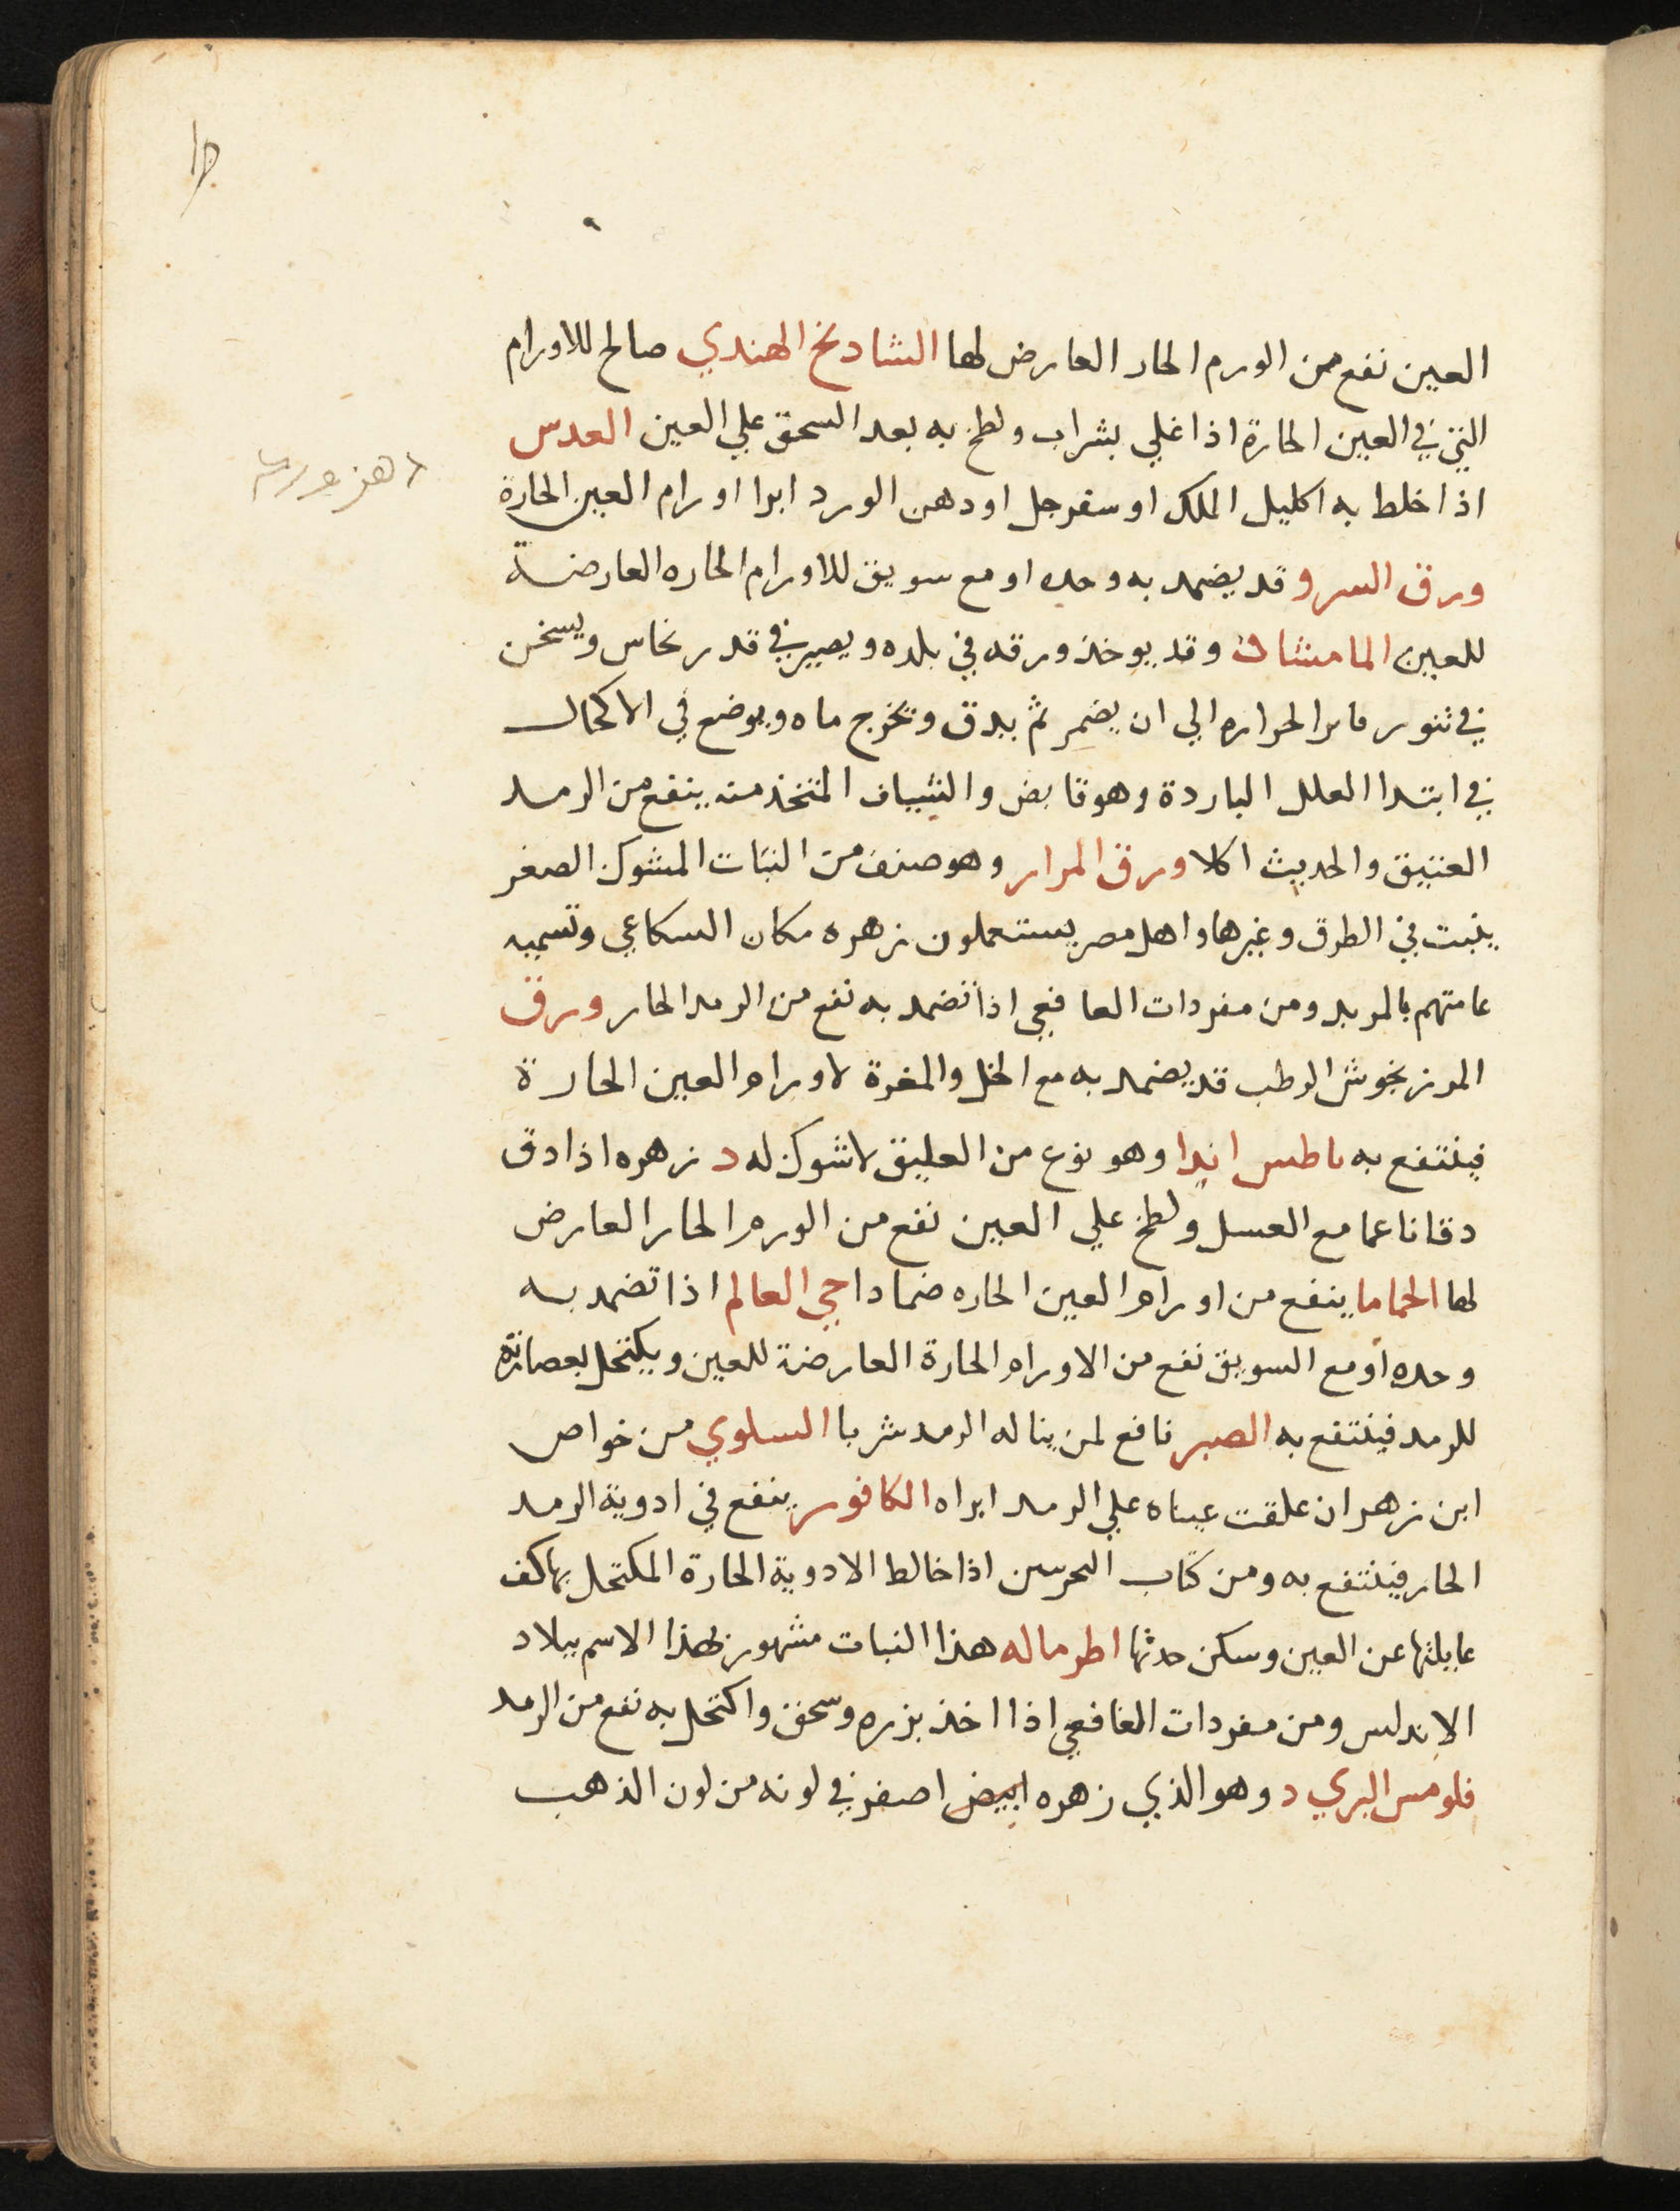 العين نفع من الورم الحار العارض لها الشادنج الهندي صالح للاورام
التي في العين الحارة اذا غلي بشراب ولطخ به بعد السحق علي العين العدس
اذا خلط به اكليل الملك او سفرجل او دهن الورد ابرا اورام العين الحارة
ورق السرو قد يضمد به وحده او مع سويق للاورام الحاره العارضة
للعين المامشا وقد يوخذ ورقه في بلده ويصير في قدر نحاس ويسخن
في تنور فاتر الحراره الي ان يضمر ثم يدق ويخرج ماه ويوضع في الاكحال
في ابتدا العلل الباردة وهو قابض والشياف المتخذ منه ينفع من الرمد
العتيق والحديث اكلا ورق المرار وهو صنف من النبات المشوك الصغر
ينبت في الطرق وغيرها واهل مصر يستعملون زهره مكان السكاعي وتسميه
عامتهم بالمرير ومن مفردات الغافقي اذا تضمد به نفع من الرمد الحار ورق
المرزنجوش الرطب قد يضمد به مع الخل والمغرة لاورام العين الحارة
فينتفع به باطس ايدا وهو نوع من العليق لا شوك له د زهره اذا دق
دقا ناعما مع العسل ولطخ علي العين نفع من الورم الحار العارض
لها الحماما ينفع من اورام العين الحاره ضمادا حي العالم اذا تضمد به
وحده او مع السويق نفع من الاورام الحارة العارضة للعين ويكتحل بعصارته
للرمد فينتفع به الصبر نافع لمن يناله الرمد شربا السلوي من خواص
ابن زهر ان علقت عيناه علي الرمد ابراه الكافور ينفع في ادوية الرمد
الحار فينتفع به ومن كتاب التجربتين اذا خالط الادوية الحارة المكتحل بها كف
غايلتها عن العين وسكن حدتها اطرماله هذا النبات مشهور بهذا الاسم ببلاد
الاندلس ومن مفردات الغافقي اذا اخذ بزره وسحق واكتحل به نفع من الرمد
فلومس البري د وهو الذي زهره ابيض اصفر في لونه من لون الذهب